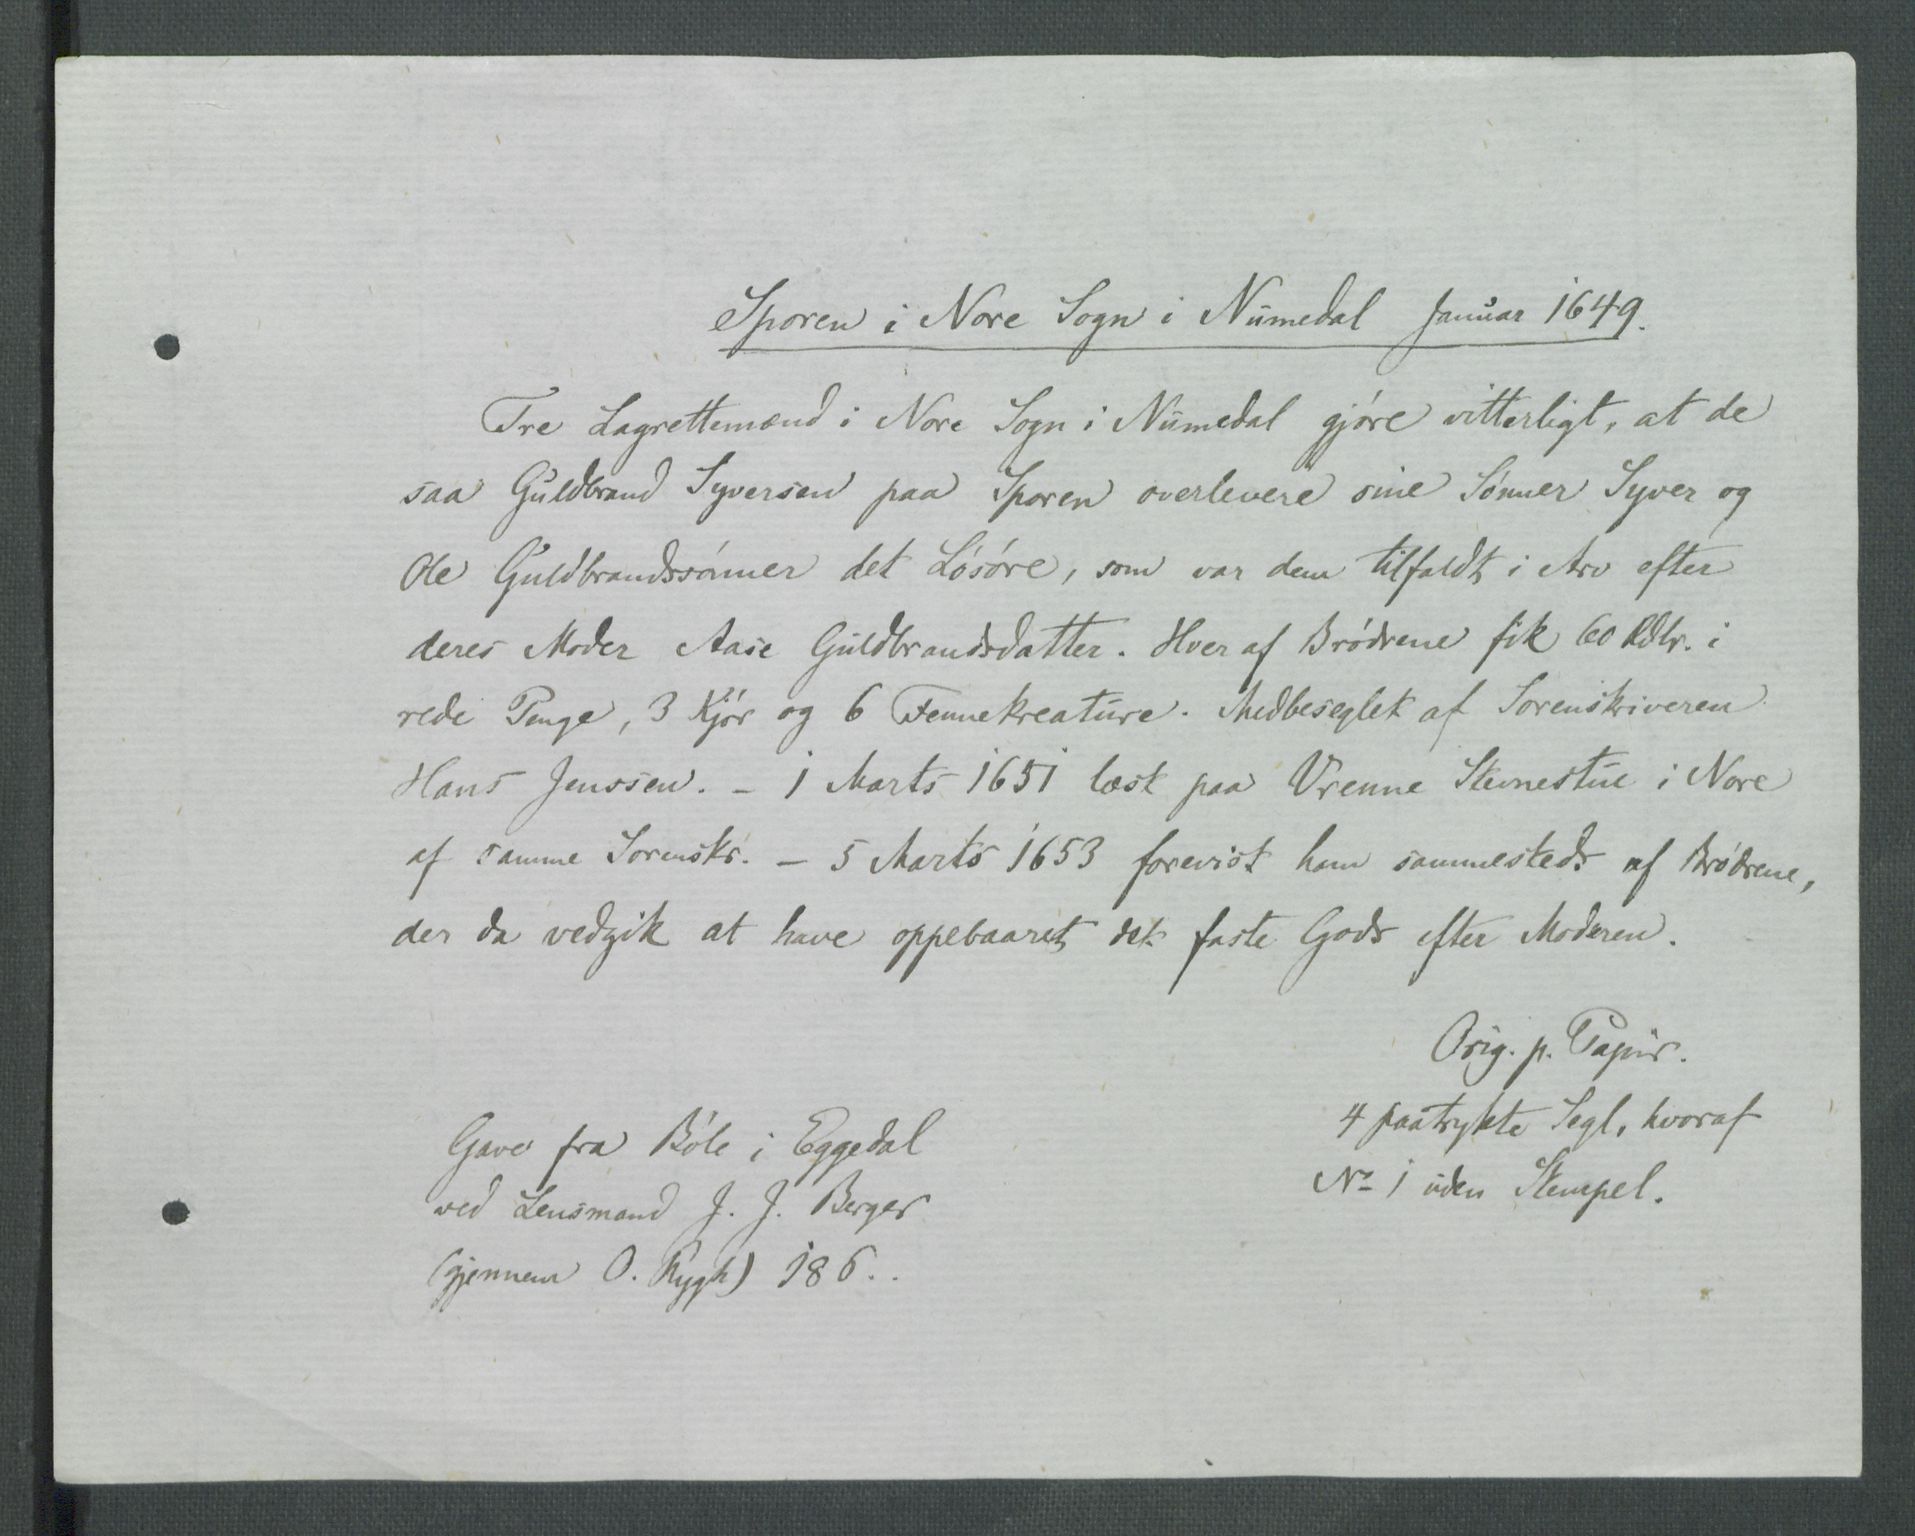 Sporen i Nore Sogn i Numedal Januar 1649.
Tre Lagrettemænd i Nore Sogn i Numedal gjöre vitterligt, at de
saa Guldbrand Syversen paa Sporen overlevere sine Sönner Syver og
Ole Guldbrandssönner det Lösöre, som var dem tilfaldt i Arv efter
deres Moder Aase Guldbrandsdatter. Hver af Brödrene fik 60 Rdlr. i
rede Penge, 3 Kjör og 6 Fennekreature. Medbeseglet af Sorenskriveren
Hans Jenssen. - 1 Marts 1651 læst paa Vrenne Stevnestue i Nore
af samme Sorenskr. - 5 Marts 1653 forevist ham sammesteds af Brödrene,
der da vedgik at have oppebaaret det faste Gods efter Moderen.
Orig. p. Papir.
4 paatrykte Segl, hvoraf
No 1 uden Stempel.
Gave fra Böle i Eggedal
ved Lensmand J. J. Berger
(gjennem O. Rygh) 186..